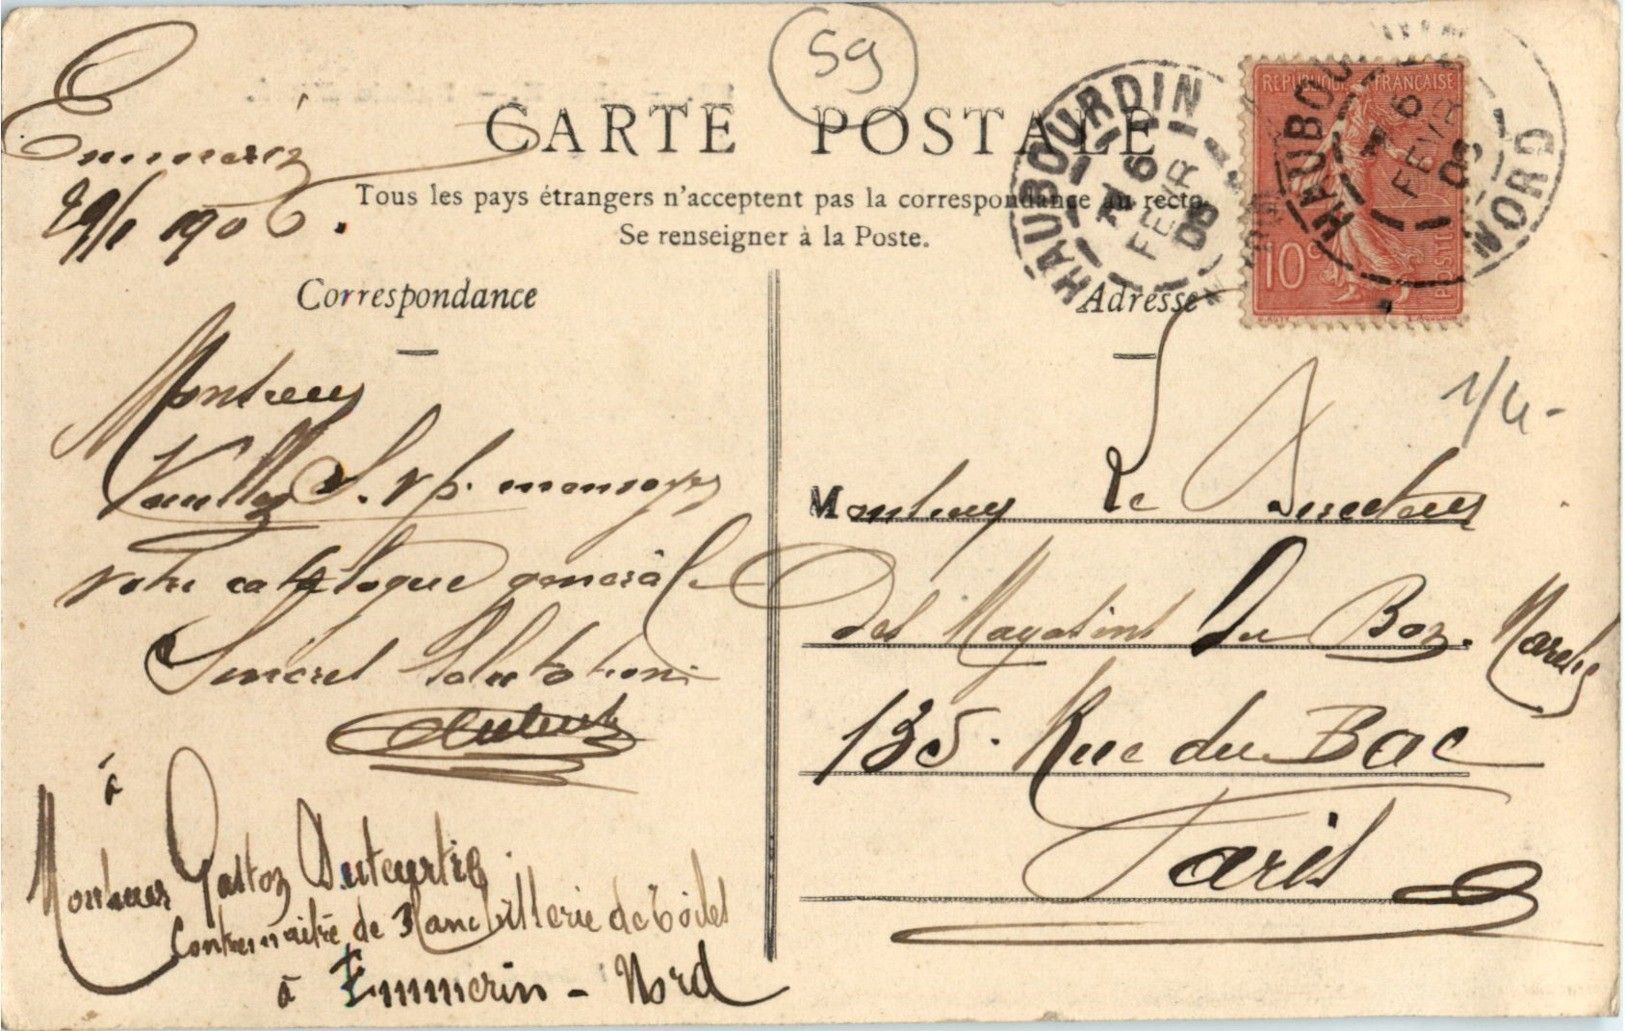 59
CARTE POSTALE
Tous les pays étrangers n'acceptent pas la correspondance au recto.
Se renseigner à la Poste.
Emmerin
29/1 1906.
Correspondance
Monsieur
Veuillez S. v p. m'envoyer
votre catalogue général
Sincères Salutations
à
Monsieur Gaston Duteurtre
Contremaitre de Blanchillerie de Toiles
à Emmerin - Nord
HAUBOURDIN
6
FEVR
06
REPUBLIQUE FRANÇAISE
10c
POSTES
HAUBOU
NORD
6
FEVR
06
Adresse
1/4-
Monsieur Le Directeur
Des Magasins Du Bon-Marché
135. Rue du Bac
Paris